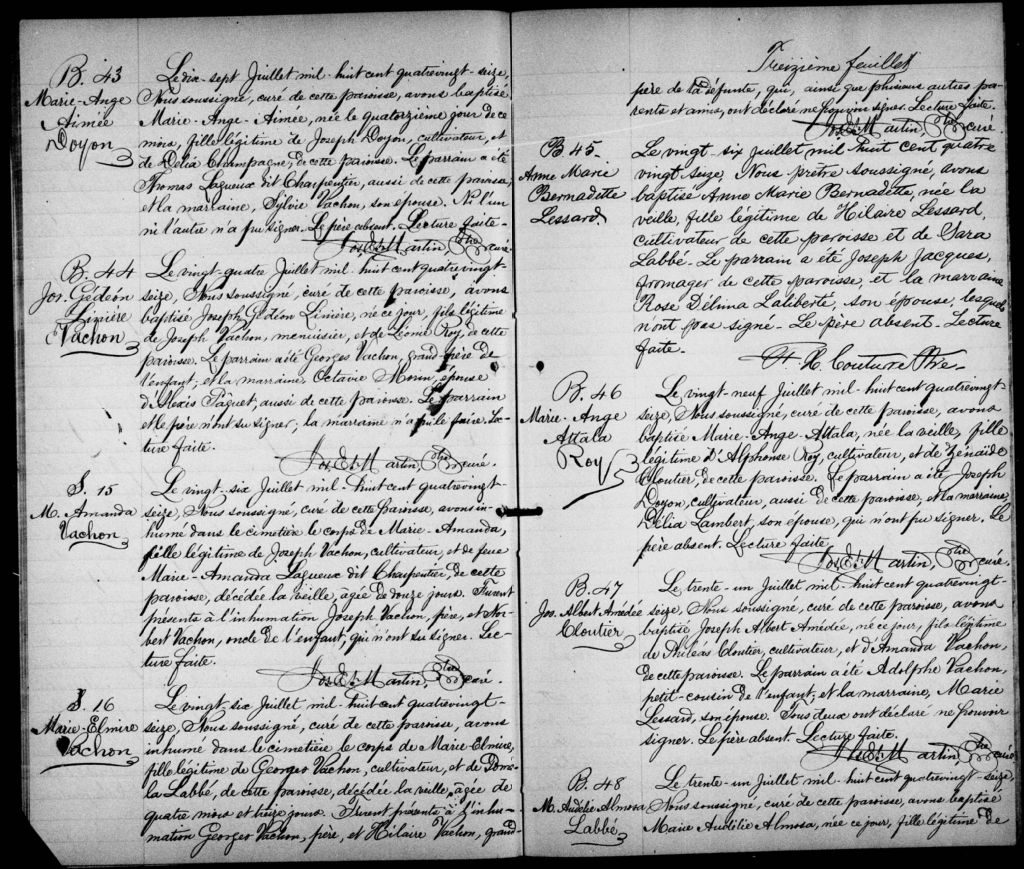 B. 43
Marie-Ange
Aimée
Doyon
Le dix-sept Juillet mil-huit cent quatrevingt-seize,
Nous soussigné, curé de cette paroisse, avons baptisé
Marie-Ange-Aimée, née le quatorzième jour de ce
mois, fille légitime de Joseph Doyon, cultivateur, et
de Délia Champagne, de cette paroisse. Le parrain a été
Thomas Lagueux dit Charpentier, aussi de cette paroisse,
et la marraine, Sylvie Vachon, son épouse. Ni l'un
ni l'autre n'a pu signer. Le père absent. Lecture faite.
Jos. Ed. Martin, Ptre curé.
B. 44
Jos. Gédéon
Linière
Vachon
Le vingt-quatre Juillet mil-huit cent quatrevingt-
seize, Nous soussigné, curé de cette paroisse, avons
baptisé Joseph Gédéon Linière, né ce jour, fils légitime
de Joseph Vachon, menuisier, et de Léonie Roy, de cette
paroisse. Le parrain a été Georges Vachon, grand-père de
l'enfant, et la marraine, Octavie Morin, épouse
d'Alexis Paquet, aussi de cette paroisse. Le parrain
et le père n'ont su signer, la marraine n'a pu le faire. Lec-
ture faite.
Jos. Ed. Martin, Ptre curé.
S. 15
M. Amanda
Vachon
Le vingt-six Juillet mil-huit cent quatrevingt-
seize, Nous soussigné, curé de cette paroisse, avons in-
humé dans le cimetière le corps de Marie-Amanda,
fille légitime de Joseph Vachon, cultivateur, et de feue
Marie-Amanda Lagueux dit Charpentier, de cette
paroisse, décédée la veille, âgée de douze jours. Furent
présents à l'inhumation Joseph Vachon, père, et Nor-
bert Vachon, oncle de l'enfant, qui n'ont su signer. Lec-
ture faite.
Jos. Ed. Martin, Ptre curé.
S. 16
Marie-Elmire
Vachon
Le vingt-six Juillet mil-huit cent quatrevingt-
seize, Nous soussigné, curé de cette paroisse, avons
inhumé dans le cimetière le corps de Marie-Elmire,
fille légitime de Georges Vachon, cultivateur, et de
la Labbé, de cette paroisse, décédée la veille, âgée de
quatre mois et treize jours. Furent présents à l'inhu-
mation Georges Vachon, père, et Hilaire Vachon, grand-
Treizième feuillet
père de la défunte, qui, ainsi que plusieurs autres pa-
rents et amis, ont déclaré ne pouvoir signer. Lecture faite.
Jos. Ed. Martin Ptre curé.
B 45-
Anne Marie
Bernadette
Lessard
Le vingt six juillet mil huit cent quatre
vingt seize, Nous prêtre soussigné, avons
baptisé Anne Marie Bernadette, née la
veille, fille légitime de Hilaire Lessard,
cultivateur de cette paroisse et de Sara
Labbé. Le parrain a été Joseph Jacques,
fromager de cette paroisse, et la marraine
Rose Délima Laliberté, son épouse, lesquels
n'ont pas signé. Le père absent. Lecture
faite.
F. X. Couture Ptre
B. 46
Marie-Ange
Attala
Roy
Le vingt-neuf Juillet mil-huit cent quatrevingt
seize, Nous soussigné, curé de cette paroisse, avons
baptisé Marie-Ange Attala, née la veille, fille
légitime d'Alphonse Roy, cultivateur, et de Zénaïde
Cloutier, de cette paroisse. Le parrain a été Joseph
Doyon, cultivateur, aussi de cette paroisse, et la marraine,
Délia Lambert, son épouse, qui n'ont pu signer. Le
père absent. Lecture faite.
Jos. Ed. Martin, Ptre curé.
B. 47
Jos. Albert Amédée
Cloutier
Le trente-un Juillet mil-huit cent quatrevingt-
seize, Nous soussigné, curé de cette paroisse, avons
baptisé Joseph Albert Amédée, né ce jour, fils légitime
de Philéas Cloutier, cultivateur, et d'Amanda Vachon,
de cette paroisse. Le parrain a été Adolphe Vachon,
petit-cousin de l'enfant, et la marraine, Marie
Lessard, son épouse. Tous deux ont déclaré ne pouvoir
signer. Le père absent. Lecture faite.
Jos. Ed. Martin Ptre curé
B. 48
M. Audélie Almosa
Labbé
Le trente-un Juillet mil-huit cent quatrevingt-seize,
Nous soussigné, curé de cette paroisse, avons baptisé
Marie Audélie Almosa, née ce jour, fille légitime de